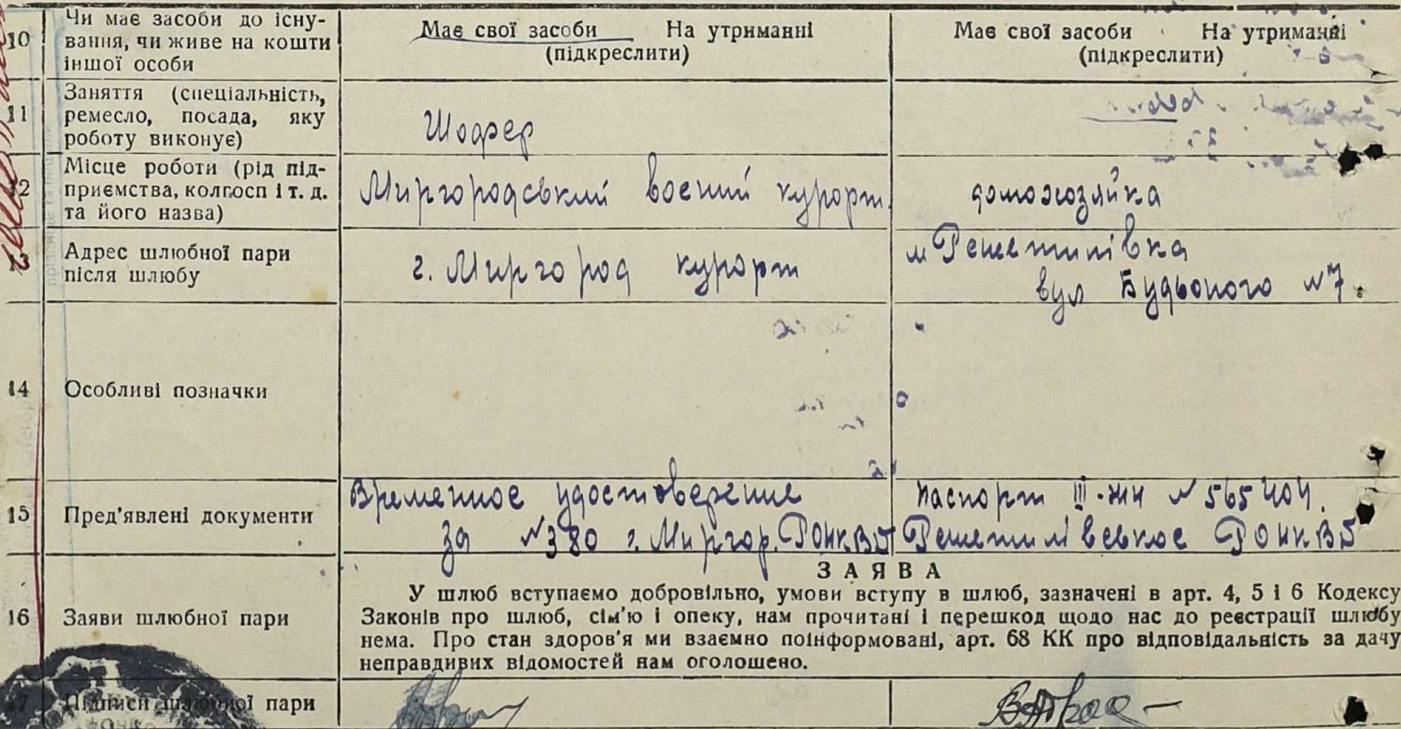 10
Чи має засоби до існу-
вання, чи живе на кошти
іншої особи
Має свої засоби На утриманні
(підкреслити)
Має свої засоби На утриманні
(підкреслити)
11
Заняття (спеціальність,
ремесло, посада, яку
роботу виконує)
Шофер
Місце роботи (рід під-
приємства, колгосп і т. д.
та його назва)
Миргородський воєний курорт.
домохозяйка
Адрес шлюбної пари
після шлюбу
г. Миргород курорт
м Решетилівка
вул Будьоного №7.
14
Особливі позначки
15
Пред'явлені документи
Временное удостоверение
за №380 г. Миргор. РОНКВД
паспорт III-ЖЧ №565404.
Решетилівськоє РОНКВД
16
Заяви шлюбної пари
ЗАЯВА
У шлюб вступаємо добровільно, умови вступу в шлюб, зазначені в арт. 4, 5 і 6 Кодексу
Законів про шлюб, сім'ю і опеку, нам прочитані і перешкод щодо нас до реєстрації шлюбу
нема. Про стан здоров'я ми взаємно поінформовані, арт. 68 КК про відповідальність за дачу
неправдивих відомостей нам оголошено.
Підписи шлюбної пари